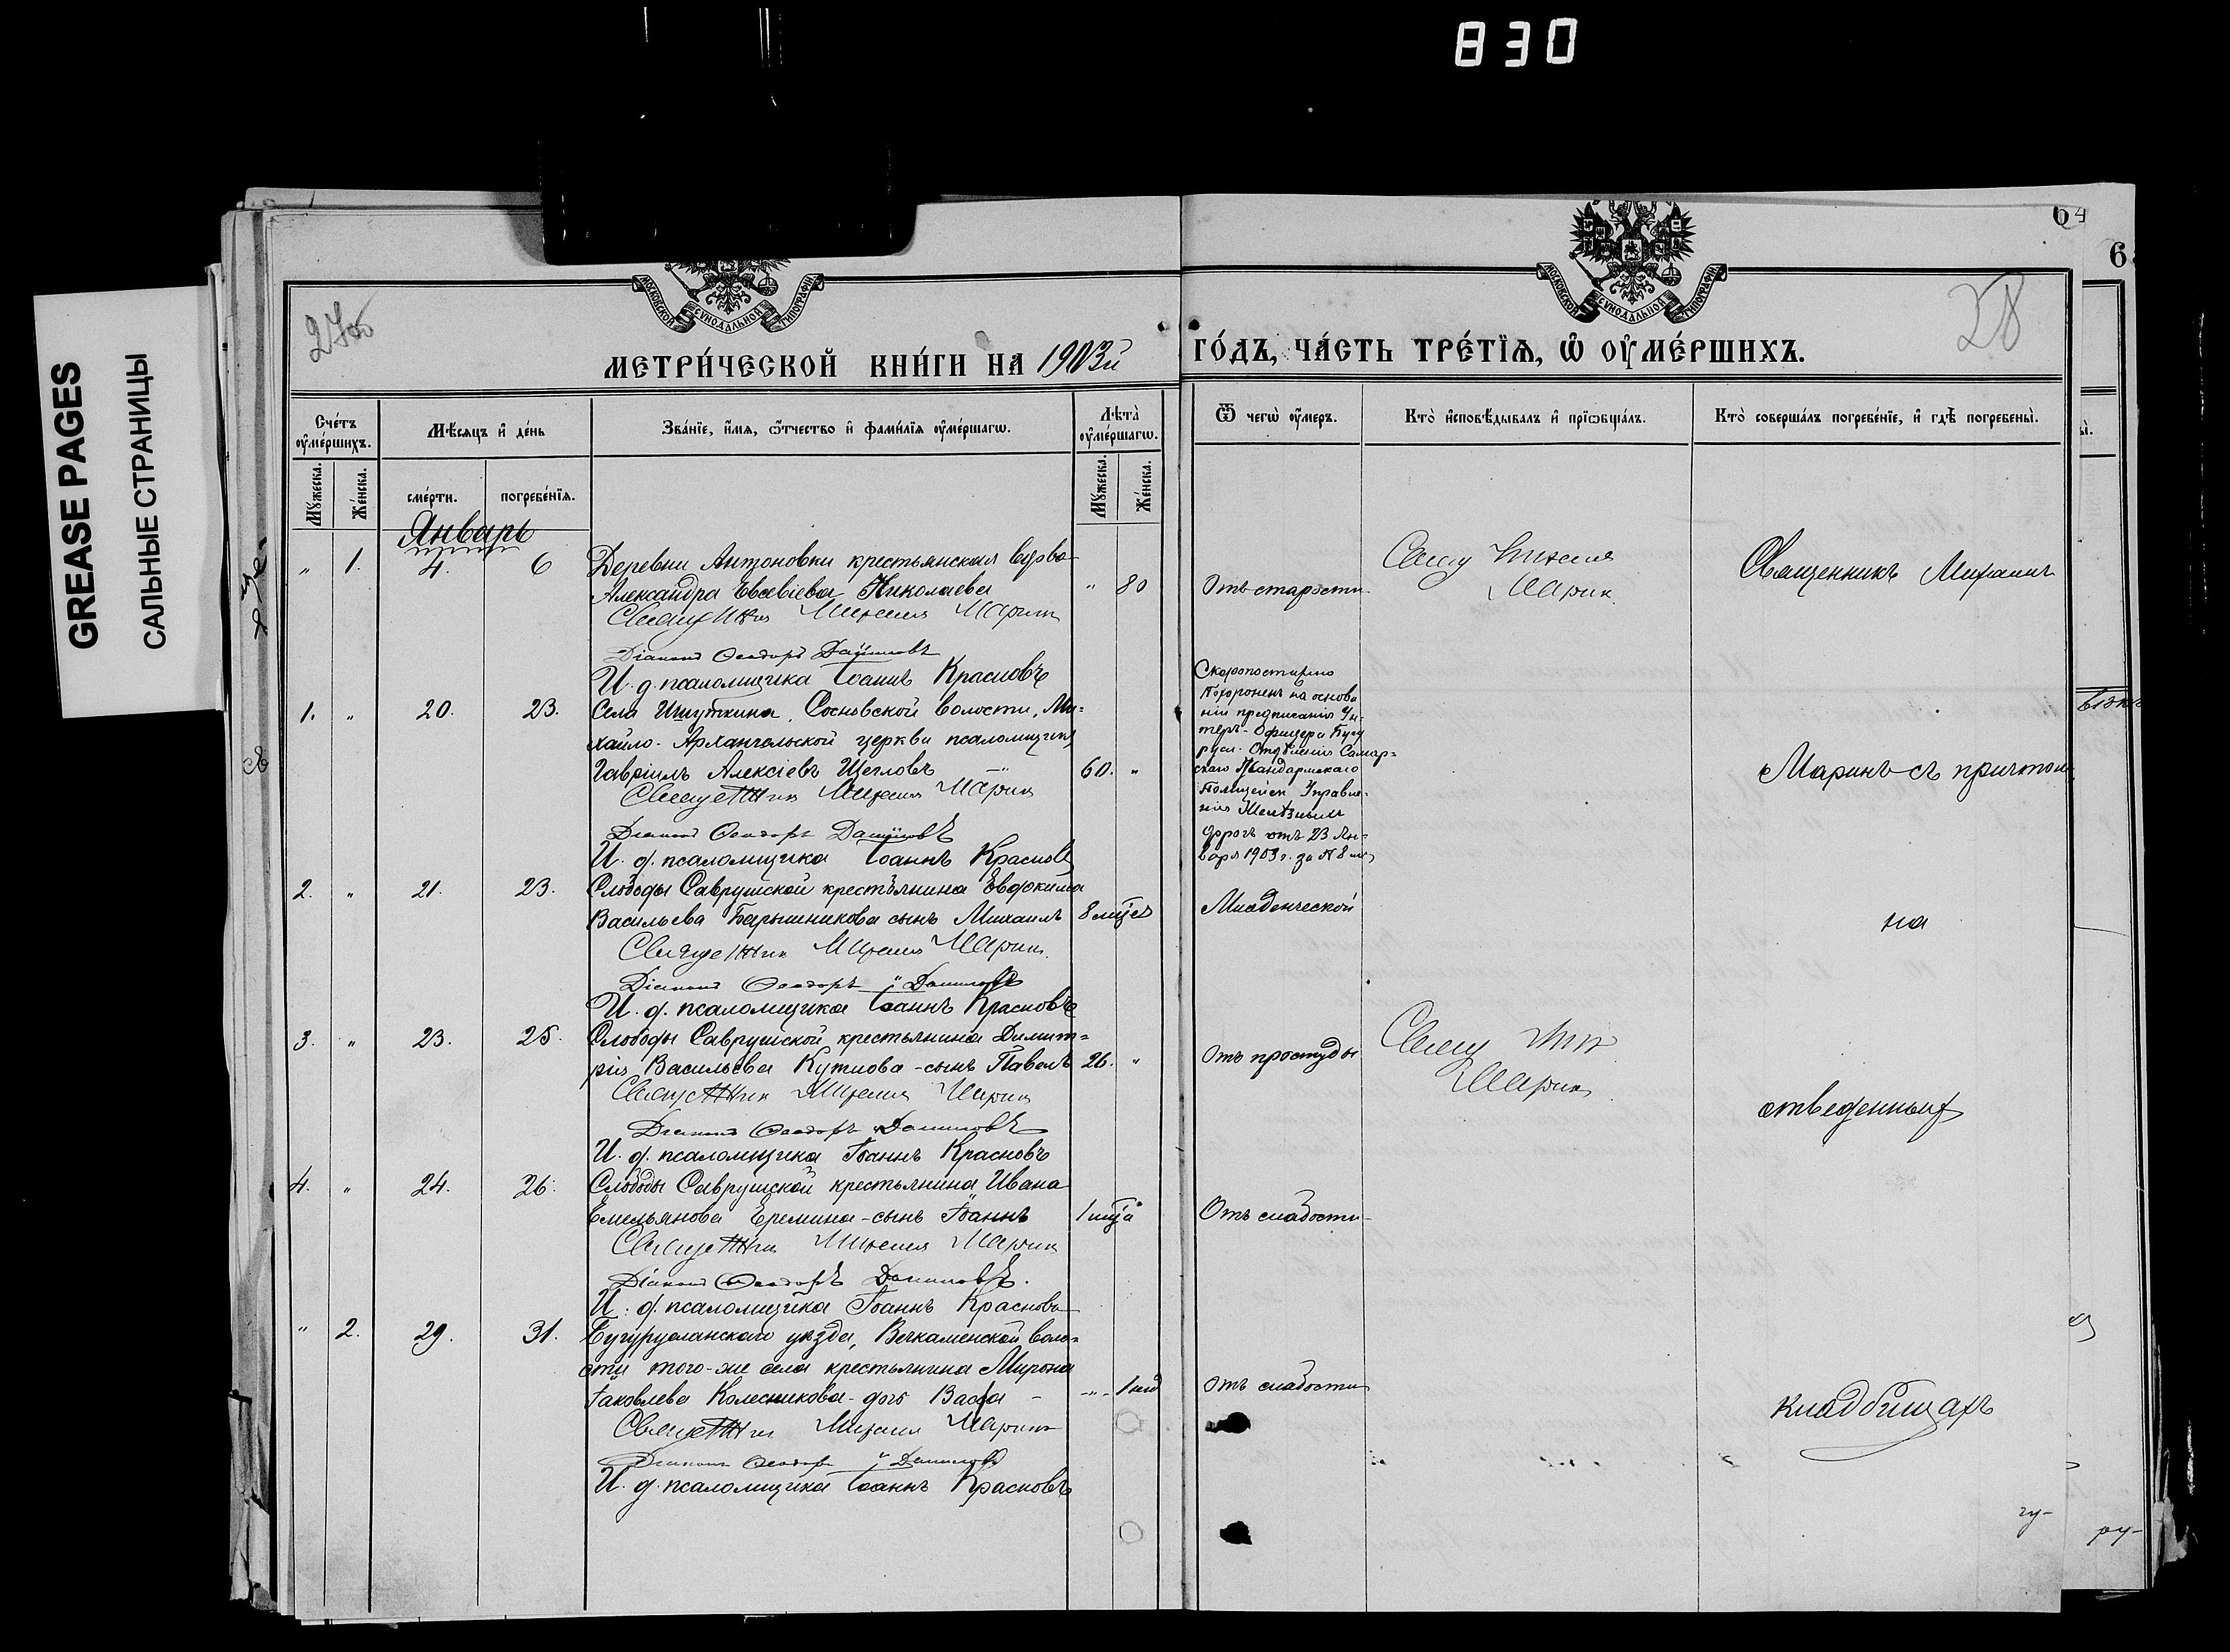 830
GREASE PAGES
САЛЬНЫЕ СТРАНИЦЫ
64
28
МОСКОВСКОЙ СѴНОДАЛЬНОЙ ТИПОГРАФІИ
МОСКОВСКОЙ СѴНОДАЛЬНОЙ ТИПОГРАФІИ
МЕТРИ́ЧЕСКОЙ КНИ́ГИ НА 1903й ГО́ДЪ, ЧА́СТЬ ТРЕ́ТЇѦ, Ѡ҆ ОУ҆МЕ́РШИХЪ.
Сче́тъ оу҆ме́ршихъ.
Мѣ́сяцъ и҆ де́нь
Зва́нїе, и҆́мя, ѻ҆́тчество и҆ фами́лїя оу҆ме́ршагѡ.
Лѣта̀ оу҆ме́ршагѡ.
Ѿ чегѡ̀ оу҆́меръ.
Кто̀ и҆сповѣ́дывалъ и҆ прїѡбща́лъ.
Кто̀ соверша́лъ погребе́нїе, и҆ гдѣ̀ погребены̀.
Мꙋ́жеска. Же́нска. сме́рти. погребе́нїя. Мꙋ́жеска. Же́нска.
Январь
" 1. 4. 6 Деревни Антоновки крестьянская вдова
Александра Евсевіева Николаева " 80 Отъ старости
Священникъ Михаилъ Маринъ
Діаконъ Ѳеодоръ Даниловъ
И. д. псаломщика Іоаннъ Красновъ
Маринъ
Священникъ Михаилъ
1. " 20. 23. Села Ишуткина, Сосновской волости, Ми-
хайло-Архангельской церкви псаломщикъ
Гавріилъ Алексіевъ Щегловъ 60. "
Священникъ Михаилъ Маринъ
Діаконъ Ѳеодоръ Даниловъ
И. д. псаломщика Іоаннъ Красновъ
Скоропостижно
Похороненъ на основа
ніи предписанія Ун-
теръ-Офицера Бугу
русл. Отдѣленія Самар-
скаго Жандармскаго
Полицейск Управле-
нія Желѣзныхъ
дорогъ отъ 23 Ян-
варя 1903 г. за № 8
Маринъ съ причтомъ
2. " 21. 23. Слободы Саврушской крестьянина Евфокима
Васильева Барышникова сынъ Михаилъ 8 мцевъ Младенческой
Священникъ Михаилъ Маринъ
Діаконъ Ѳеодоръ Даниловъ
И. д. псаломщика Іоаннъ Красновъ
на
3. " 23. 25. Слободы Саврушской крестьянина Димит-
рія Васильева Кутцова - сынъ Павелъ 26. " Отъ простуды
Священникъ Михаилъ Маринъ
Діаконъ Ѳеодоръ Даниловъ
И. д. псаломщика Іоаннъ Красновъ
Маринъ
отведенныхъ
4. " 24. 26. Слободы Саврушской крестьянина Ивана
Емельянова Еремина - сынъ Іоаннъ 1 мца Отъ слабости
Священникъ Михаилъ Маринъ
Діаконъ Ѳеодоръ Даниловъ.
И. д. псаломщика Іоаннъ Красновъ
" 2. 29. 31. Бугурусланскаго уѣзда, Вечкаменской воло-
сти того-же села крестьянина Мирона
Іаковлева Колесникова - дочь Васса - Отъ слабости
Священникъ Михаилъ Маринъ
Діаконъ Ѳеодоръ Даниловъ
И. д. псаломщика Іоаннъ Красновъ
кладбищахъ